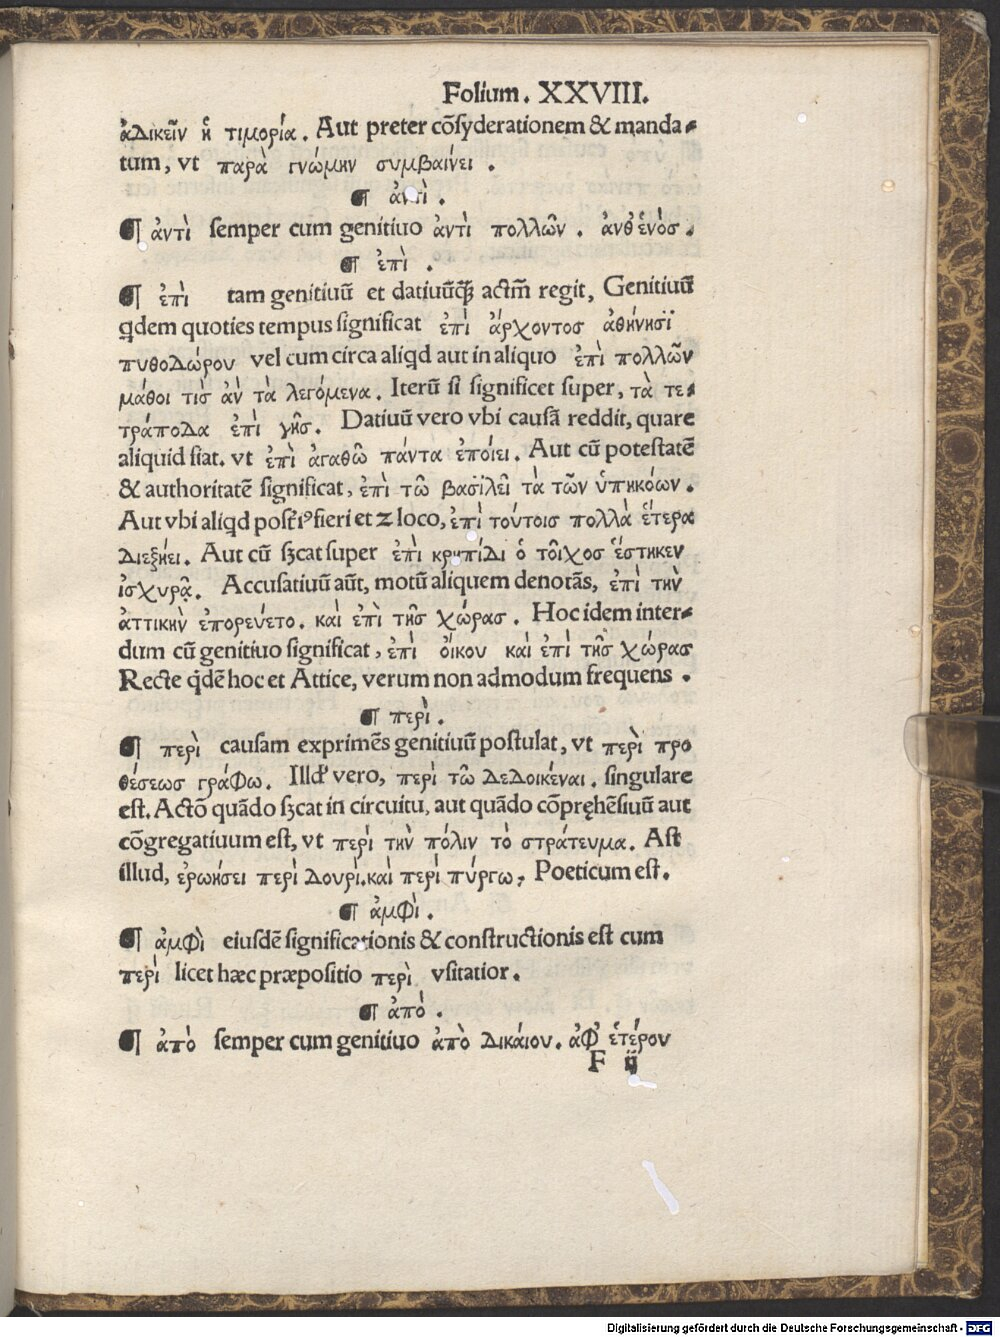 Folium. XXVIII.
ἀδικεῖν ἡ τιμορία. Aut preter cōsyderationem & manda⸗
tum, vt παρὰ γνώμην συμβαίνει.
¶ ἀντὶ.
¶ ἀντὶ semper cum genitiuo ἀντὶ πολλῶν. ἀνθ ἑνὸσ.
¶ ἐπὶ.
¶ ἐπὶ tam genitiuū et datiuūq̃ꝫ actm̄ regit, Genitiuū
q̇dem quoties tempus significat ἐπὶ ἄρχοντοσ ἀθήνησϊ
πυθοδώρου vel cum circa aliq̇d aut in aliquo ἐπὶ πολλῶν
μάθοι τὶσ ἀν τὰ λεγόμενα. Iterū si significet super, τὰ τε⸗
τράποδα ἐπὶ γῆσ. Datiuū vero vbi causā reddit, quare
aliquid fiat. vt ἐπὶ ἀγαθῶ πάντα ἐποίει. Aut cū potestatē
& authoritatē significat, ἐπὶ τῶ βασϊλεῖ τὰ τῶν ὑπηκόων.
Aut vbi aliq̇d poster̄iꝰ fieri et 2 loco, ἐπὶ τούτοισ πολλὰ ἕτερα
διεξήει. Aut cū sꝫcat super ἐπὶ κρηπίδι ὁ τοῖχοσ ἕστηκεν
ἰσχυρᾷ. Accusatiuū aūt, motū aliquem denotās, ἐπὶ τὴν
ἀττικὴν ἐπορεύετο. καὶ ἐπὶ τῆσ χώρασ. Hoc idem inter⸗
dum cū genitiuo significat, ἐπὶ ὄικου καὶ ἐπὶ τῆσ χώρασ
Recte q̇dē hoc et Attice, verum non admodum frequens.
¶ περὶ.
¶ περὶ causam exprimēs genitiuū postulat, vt περὶ προ
θέσεωσ γράφω. Illdʼ vero, περὶ τῶ δεδοικέναι. singulare
est. Actō quādo sꝫcat in circuitu, aut quādo cōpręhēsiuū aut
cōgregatiuum est, vt περὶ τὴν πόλιν τὸ στράτευμα. Ast
illud, ἐρωήσει περὶ δουρὶ. καὶ περὶ πύργω, Poeticum est.
¶ ἀμφὶ.
¶ ἀμφὶ eiusdē significationis & constructionis est cum
περὶ licet hæc præpositio περὶ vsitatior.
¶ ἀπὸ.
¶ ἀπὸ semper cum genitiuo ἀπὸ δικάιου. ἀφ ἑτέρου
F ij
Digitalisierung gefördert durch die Deutsche Forschungsgemeinschaft - DFG